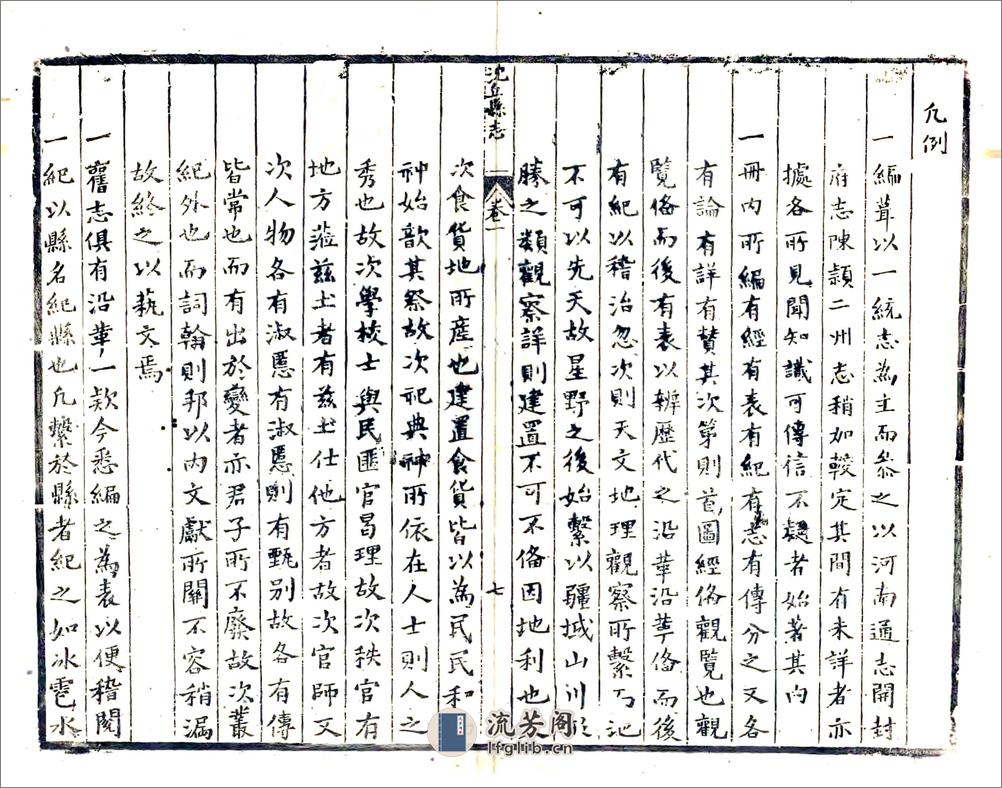 凡例
一編葺以一統志為主而叅之以河南通志開封
府志陳頴二州志稍如較定其間有未詳者亦
據各所見聞知識可傳信不疑者始著其内
一冊内所編有經有表有紀有志有傳分之又各
有論有詳有贊其次第則首圖經俻觀覽也觀
覽俻而後有表以辨歷代之沿革沿革俻而後
有紀以稽治忽次則天文地理觀察所繫乃
不可以先天故星野之後始繫以疆域山川形
勝之類觀察詳則建置不可不俻因地利也
次食貨地所産也建置食貨皆以為民民和
神始歆其祭故次祀典神所依在人士則人之
秀也故次學校士與民匪官曷理故次秩官有
地方蒞兹土者有兹土仕他方者故次官師又
次人物各有淑慝有淑慝則有甄别故各有傳
皆常也而有出於變者亦君子所不廢故次叢
紀外也而詞翰則邦以内文獻所關不容稍漏
故終之以藝文焉
一舊志俱有沿革一欵今悉編之為表以便稽閲
一紀以縣名紀縣也凡繫於縣者紀之如氷雹水
沈丘縣志
卷一
七
流芳阁
lfglib.cn